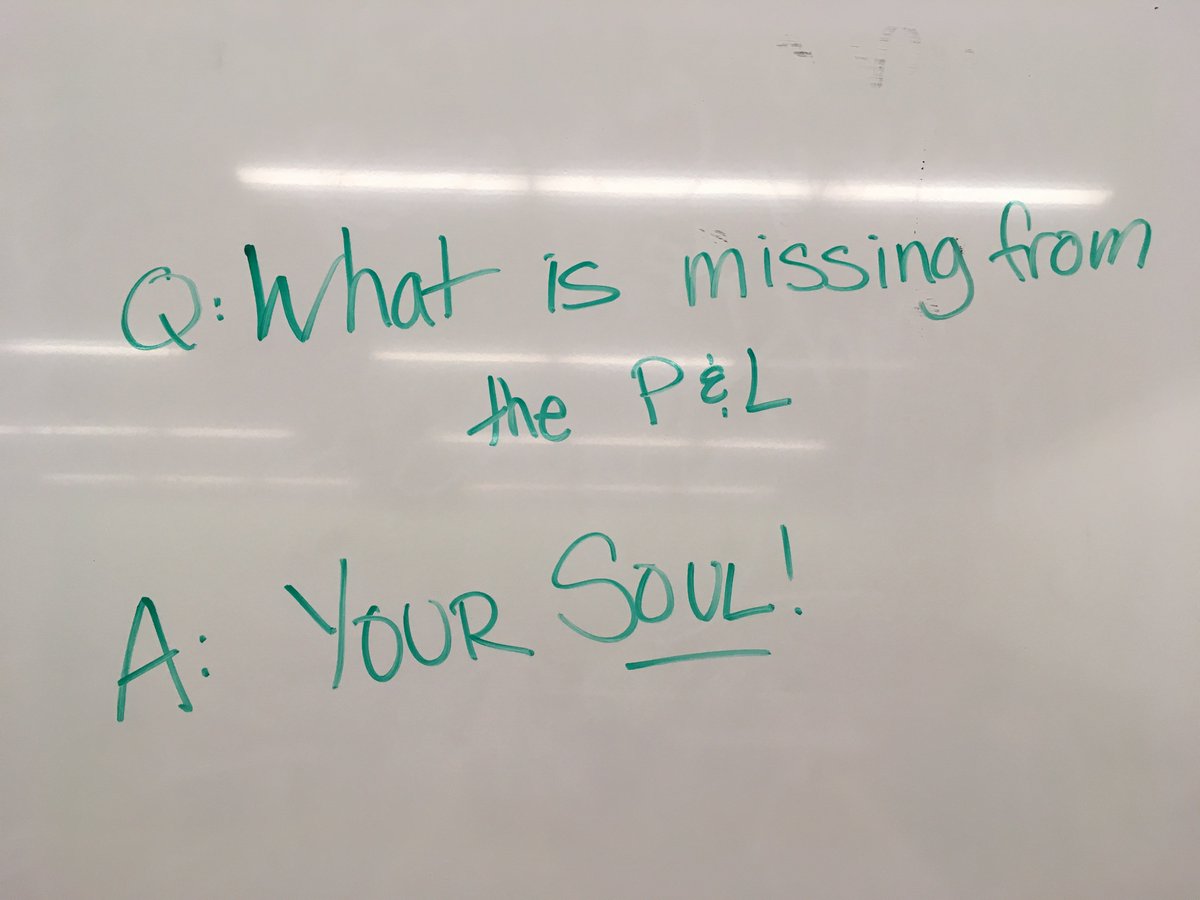 Q: What is missing from
the P&L
A: YOUR SOUL!